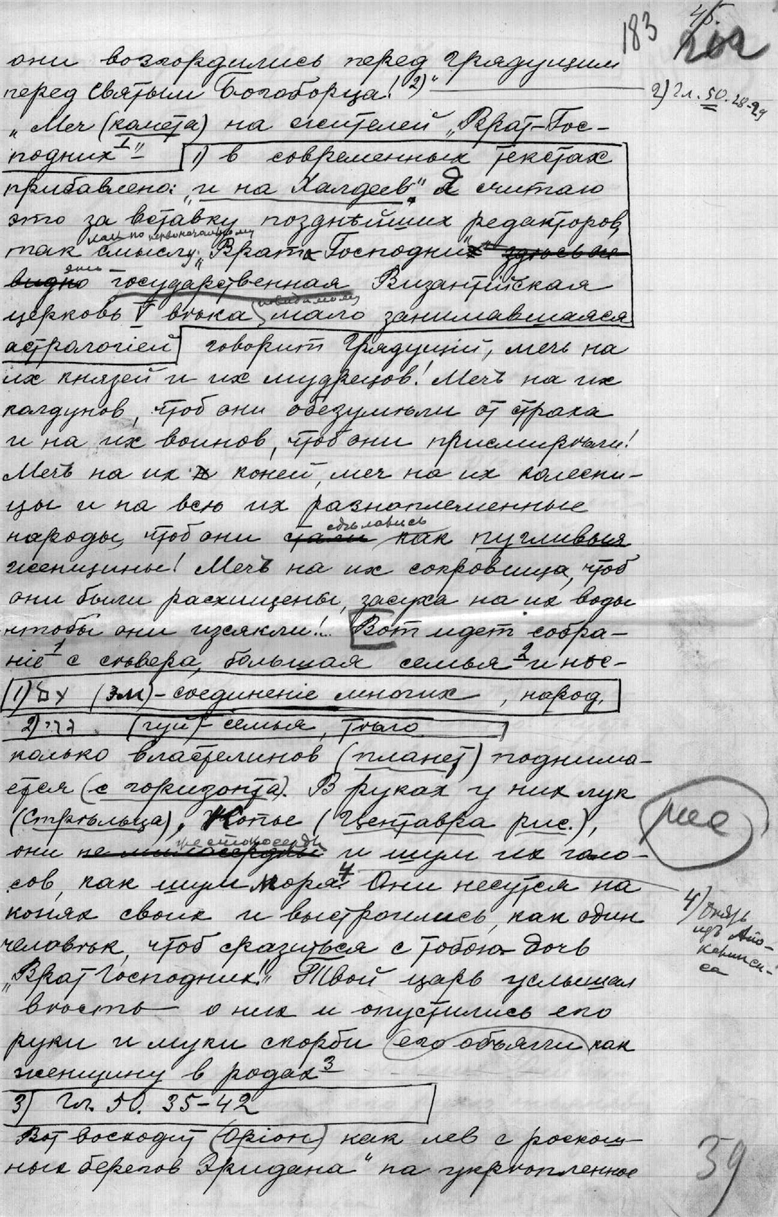 45.
183 202
они возгордились перед Грядущим
перед Святым Богоборца! 2)
2) Гл. 50. 28-29
„Меч (комета) на жителей „Врат-Гос-
подних 1" 1) в современных текстах
прибавлено: „и на Халдеев". Я считаю
это за вставку позднѣйших редакторов,
так как по первоначальному
смыслу „Врата Господни" здесь все
видно есть государственная Византийская
церковь V вѣка (повидимому) мало занимавшаяся
астрологіей говорит Грядущій, мечъ на
их князей и их мудрецов! Мечъ на их
колдунов, чтоб они обезумѣли от страха
и на их воинов, чтоб они присмирѣли!
Мечъ на их коней, меч на их колесни-
цы и на всю их разноплеменные
народы, чтоб они сдѣлались как пугливыя
женщины! Мечъ на их сокровища, чтоб
они были расхищены, засуха на их воды
чтобы они изсякли!.. Вот идет собра-
ніе 1 с сѣвера, большая семья 2 и нѣс-
1) (эм) - соединеніе многих, народ.
2) (гуи) - семья, тѣло
колько властелинов (планет) поднима-
ется (с горизонта). В руках у них лук
(Стрѣльца), Копье (Центавра рис.),
рис
они не милосерды жестокосерды и шум их голо-
сов, как шум моря 4 Они несутся на
4) Связь
из Апо-
калипси-
са
конях своих и выстроились, как один
человѣк, чтоб сразиться с тобою дочь
„Врат Господних". Твой царь услышал
вѣсть о них и опустились его
руки и муки скорби его объяли как
женщину в родах 3
3) Гл. 50. 35-42
Вот восходит (Оріон) как лев с роскош-
ных берегов Эридана" на укрѣпленное
39